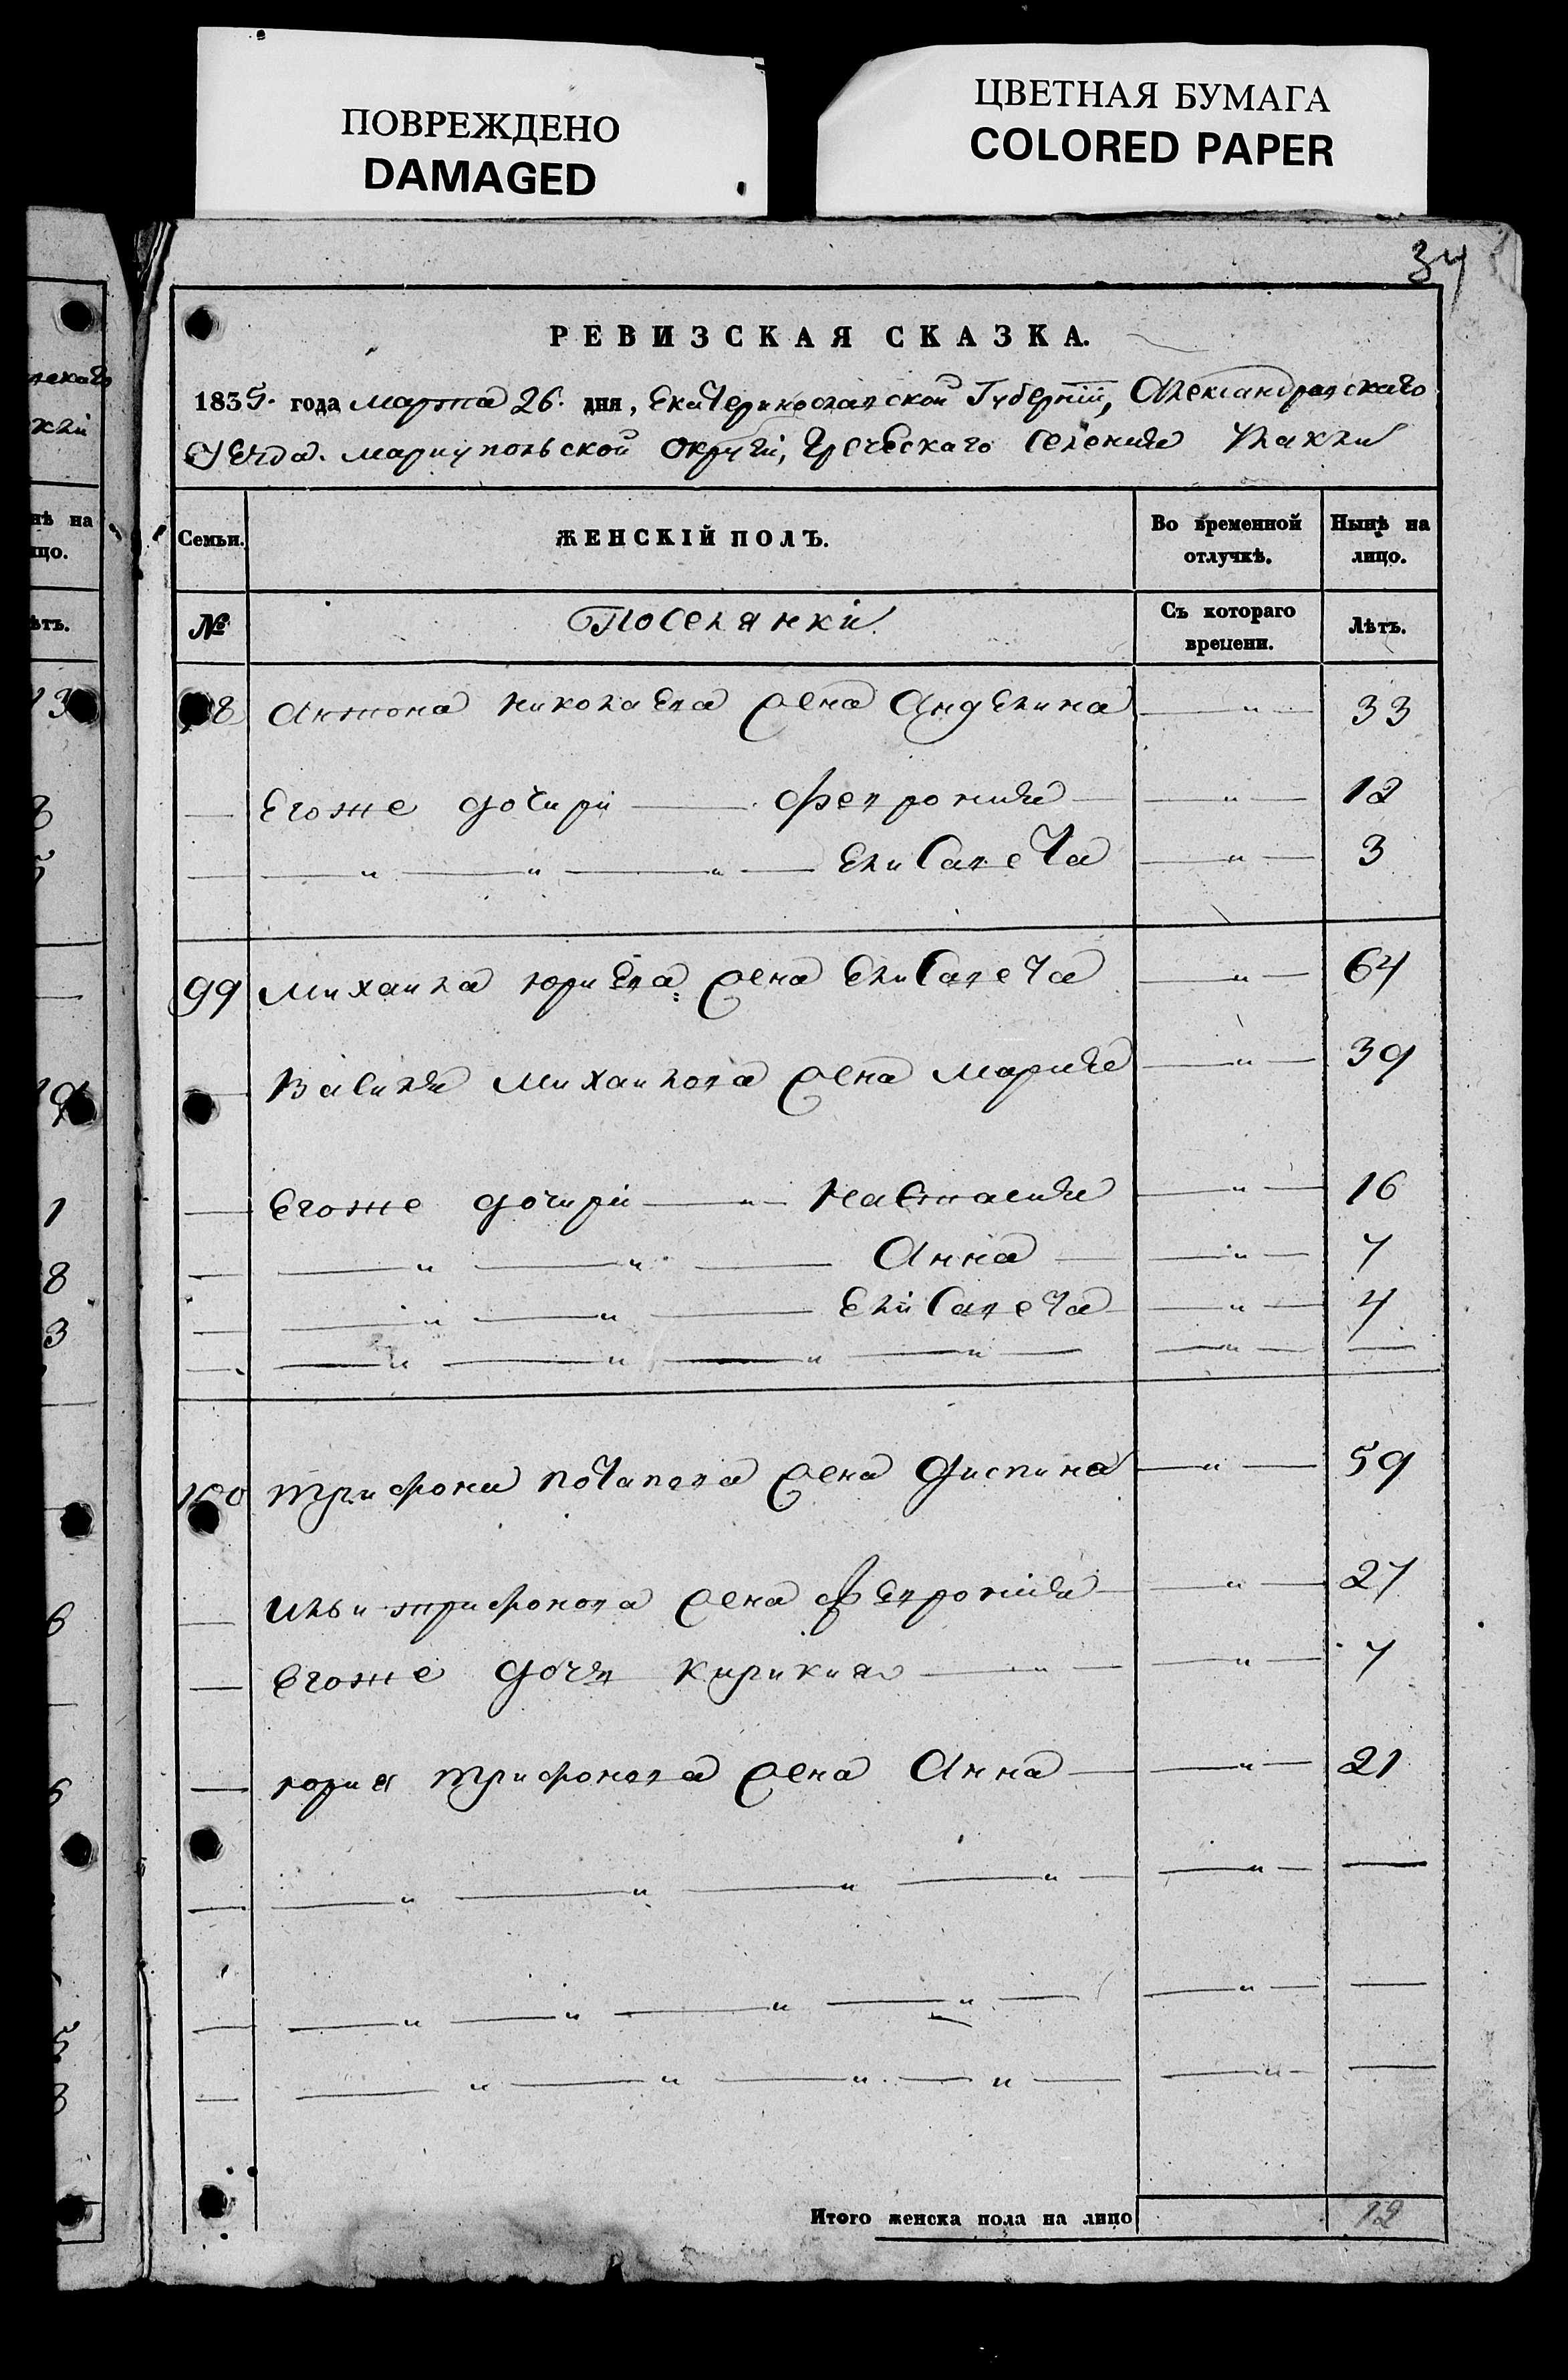 ПОВРЕЖДЕНО
DAMAGED
ЦВЕТНАЯ БУМАГА
COLORED PAPER
34
РЕВИЗСКАЯ СКАЗКА.
1835. года марта 26. дня, Екатеринославской Губернии, Александровскаго
Уезда. мариупольской округи, Греческаго Селения
Семьи. ЖЕНСКІЙ ПОЛЪ. Во временной отлучкѣ. Нынѣ на лицо.
№ Поселянки. Съ котораго времени. Лѣтъ.
8 Антона николаева жена Анделина — " — 33
— Егоже дочири — Феврония — " — 12
— " — " — " — Елисавета — " — 3
99 Михаила юриева жена Елисавета — " — 64
— Василия Михаилова жена мария — " — 39
— Егоже дочири — " — Настасия — " — 16
— " — " — Анна — " — 7
— " — " — Елисавета — " — 4
— " — " — " — " — " — —
100 трифона потапова жена Диспина — " — 59
— Ильи трифонова жена феврония — " — 27
— Егоже дочь Кирикия — " — " — 7
— юрия трифонова жена Анна — " — 21
— " — " — " — " — " — —
— " — " — " — " — " — —
— " — " — " — " — " — —
Итого женска пола на лицо 12